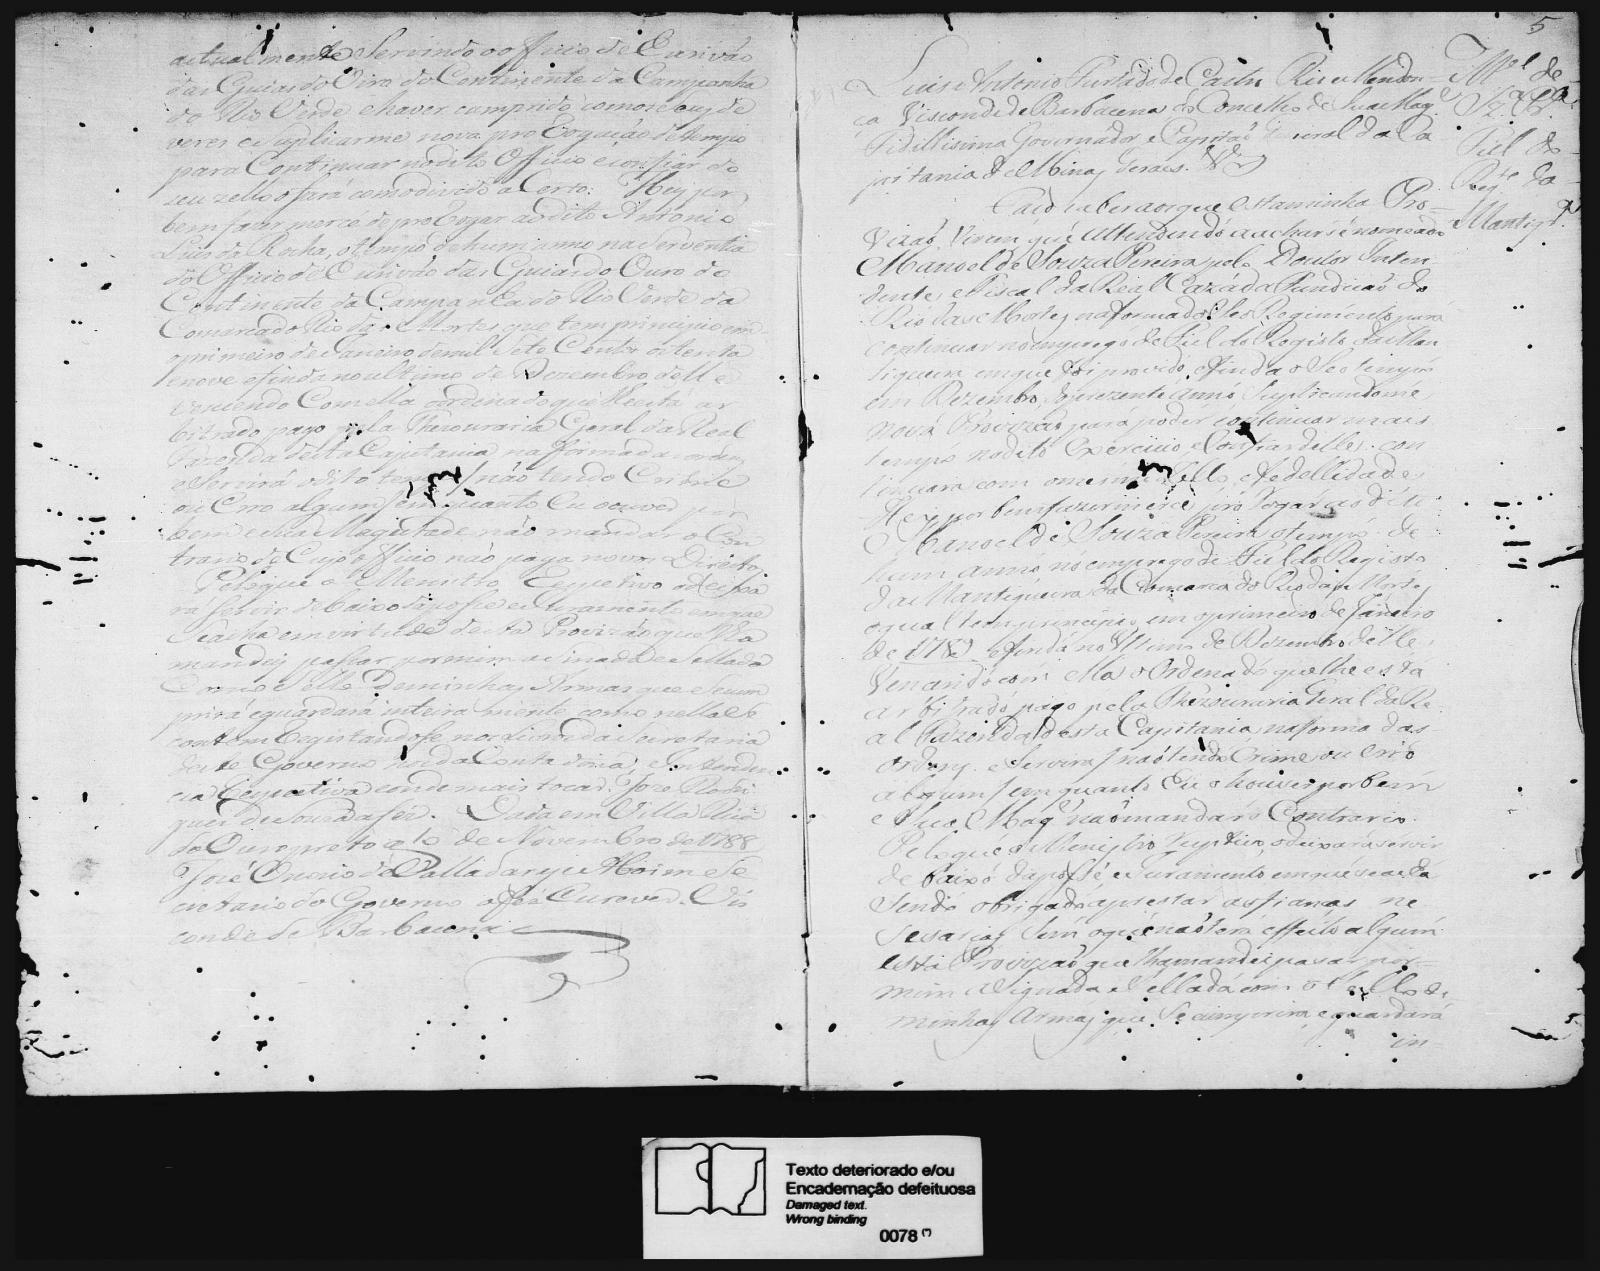 actualmente Servindo o officio de Escrivão
das Guias do Oiro do Continente da Campanha
do Rio Verde e haver cumprido com os seus de
veres e suplicarme nova proRogação de tempo
para Continuar no dito Officio e confiar do
seu zello o fará como divido a Certo: Hey por
bem fazer merce de proRogar ao dito Antonio
Luis da Rocha, o tempo de hum anno na Serventia
do Officio de Escrivão das Guias do Ouro do
Continente da Campanha do Rio Verde da
Comarca do Rio das Mortes que tem principio em
o primeiro de Janeiro de mil Sete Centos oitenta
e nove e finda no ultimo de Dezembro delle
vencendo Com ella o ordenado que lhe está ar
bitrado pago pela Thezouraria Geral da Real
Fazenda desta Capitania na forma das ordens
e Servirá o dito tempo / não tendo Crime
ou Erro algum / em quanto Eu o ouver por
bem e Sua Magestade não mandar o Con
trario de Cujo officio não paga novos Direitos
Pelo que o Menistro Respetivo o deixa
rá Servir debaixo da posse e Juramento em que
Se acha em virtude desta Provizão que lhe
mandey passar por mim aSinada e Sellada
Com o Sello de minhas Armas que se cum
prirá e guardará inteira mente como nella Se
contem Registandosse nos Livros da Secretaria
deste Governo nos da Contadoria, e Intenden
cia Respectiva e onde mais tocar. Joze Rodri
gues de Souza a fez. Dada em Villa Rica
do Ouro preto a 10 de Novembro de 1788
José Onorio de Valladares e Aboim Se
cretario do Governo a fez Escrever. Vis
conde de Barbacena
5
Luis Antonio Furtado de Castro Rio e Mendon-
ça Visconde de Barbacena do Concelho de Sua Mage
Fidellissima Governador e Capitão General da Ca
pitania de Minas Geraes. &ra
Mel de
Sza Pra
Fiel do
Regto da
Mantiqra
Faço saber aos que esta minha Pro-
vizão virem que attendendo a achar sé nomeado
Manoel de Souza Pereira pelo Doutor Inten
dente, e Fiscal da Real Caza da Fundição do
Rio das Mortes na forma do Seo Regimento para
continuar no emprego de Fiel do Registo da Man
tiqueira em que foi provido, e finda o Seo tempo
em Dezembro do prezente anno Suplicandome
nova Provizão para poder continuar mais
tempo no dito Exercicio e Confiar delle, con
tinuará com o mesmo zello, e fidellidade,
Hey por bem fazer merce, proRogar ao dito
Manoel de Souza Pereira o tempo de
hum anno no emprego de Fiel do Registo
da Mantiqueira da Comarca do Rio das Mortes
o qual tem principio em o primeiro de Janeiro
de 1789 e finda no Ultimo de Dezembro delle,
Vencendo com ella o Ordenado que lhe está
arbitrado pago pela Thezouraria Geral da Re
al Fazenda desta Capitania na forma das
ordens. e Servirá / não tendo Crime, ou erro
algum / em quanto Eu o houver por bem
e Sua Mage não mandar o Contrario.
Pelo que o Menistro Respectivo, o deixará servir
de baixo da posse e Juramento em que se acha
Sendo obrigado a prestar as fianças ne
cesarias Sem o que não terá effeito algum
esta Provizão que lhe mandei pasar por
mim aSignada e Sellada com o Sello de
minhas Armas que Se cumprirá, e guardará
in-
Texto deteriorado e/ou
Encadernação defeituosa
Damaged text.
Wrong binding
0078 (*)